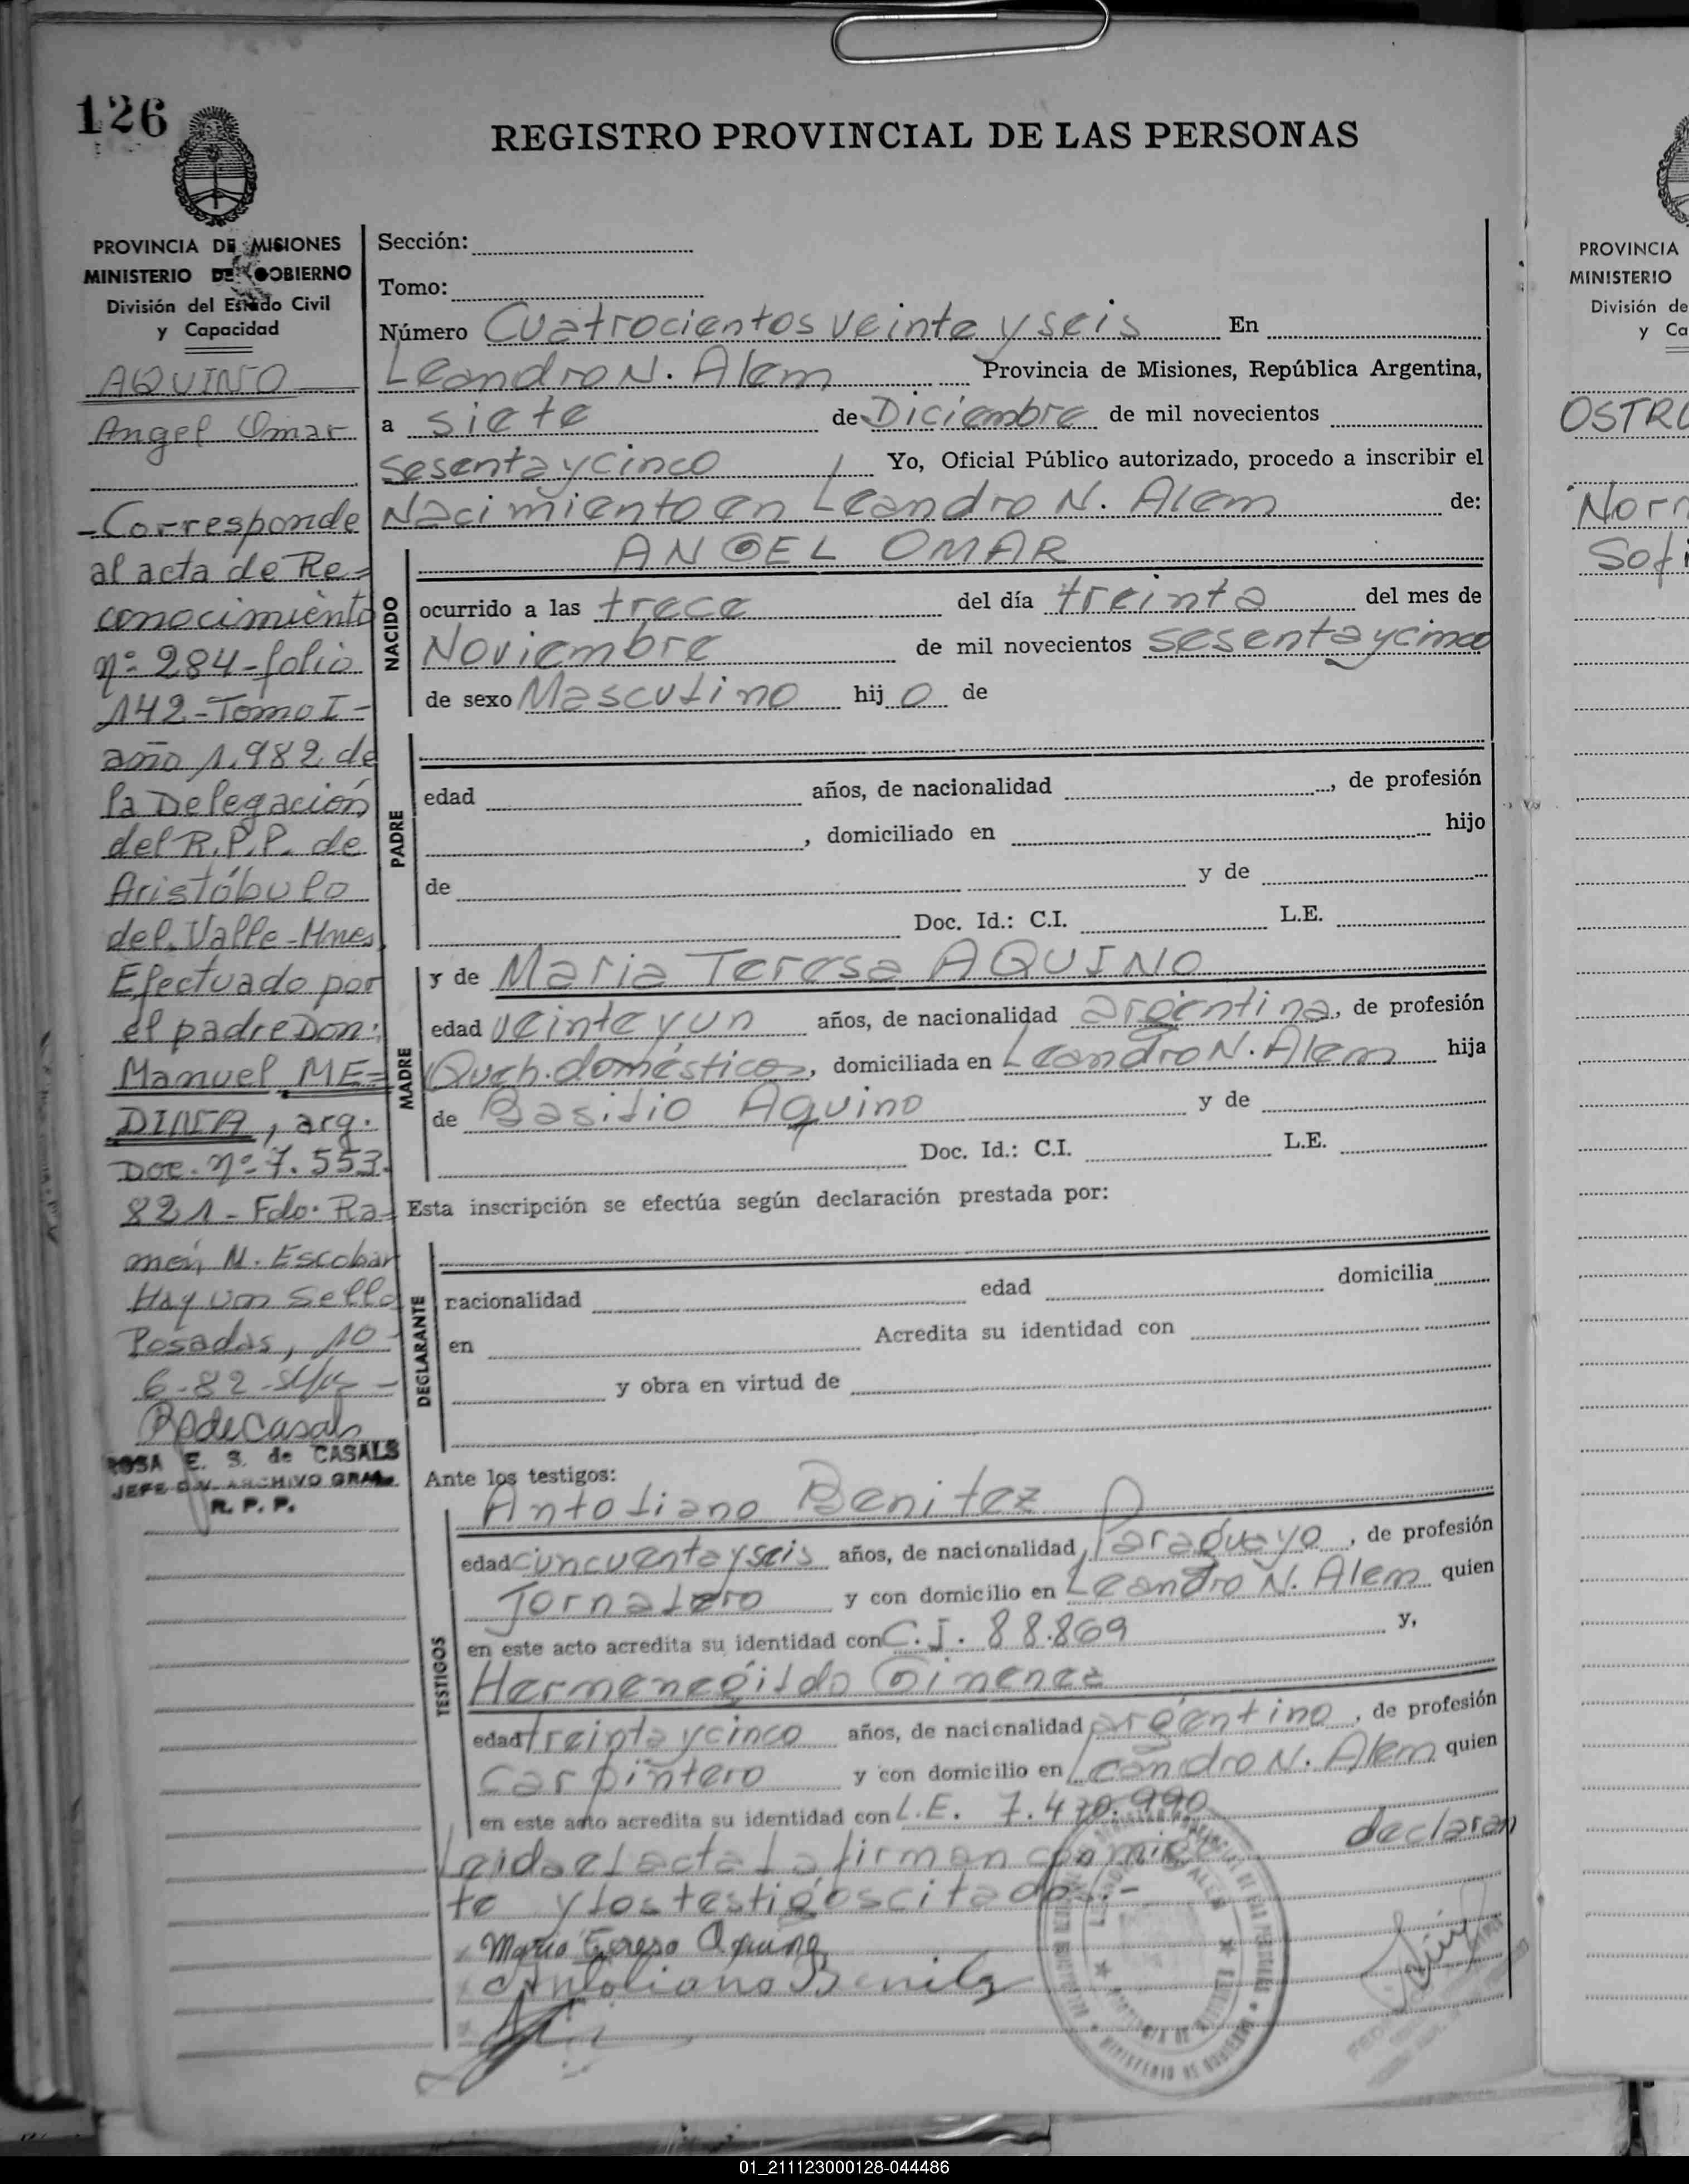 126
REGISTRO PROVINCIAL DE LAS PERSONAS
PROVINCIA DE MISIONES
MINISTERIO DE GOBIERNO
División del Estado Civil
y Capacidad
AQUINO
Angel Omar
-Corresponde
al acta de Re=
conocimiento
nº 284-folio
142-Tomo I-
año 1.982 de
la Delegación
del R.P.P. de
Aristóbulo
del Valle-Mnes
Efectuado por
el padre Don:
Manuel ME=
DINA, arg.
Doc. nº 7.553.
821- Fdo. Ra=
món N. Escobar
Hay un sello
Posadas, 10-
6-82-
ROSA E. S. de CASALS
JEFE DIV. ARCHIVO GRAL.
R. P. P.
Sección:
Tomo:
Número Cuatrocientos veinte y seis En
Leandro N. Alem Provincia de Misiones, República Argentina,
a siete de Diciembre de mil novecientos
sesenta y cinco Yo, Oficial Público autorizado, procedo a inscribir el
Nacimiento en Leandro N. Alem de:
NACIDO
ANGEL OMAR
ocurrido a las trece del día treinta del mes de
Noviembre de mil novecientos sesenta y cinco
de sexo Masculino hijo de
PADRE
edad años, de nacionalidad , de profesión
, domiciliado en hijo
de y de
Doc. Id.: C.I. L.E.
MADRE
y de Maria Teresa AQUINO
edad veinte y un años, de nacionalidad argentina, de profesión
Queh. domésticos, domiciliada en Leandro N. Alem hija
de Basilio Aquino y de
Doc. Id.: C.I. L.E.
Esta inscripción se efectúa según declaración prestada por:
DECLARANTE
nacionalidad edad domicilia
en Acredita su identidad con
y obra en virtud de
Ante los testigos:
TESTIGOS
Antoliano Benitez
edad cincuenta y seis años, de nacionalidad Paraguayo, de profesión
Jornalero y con domicilio en Leandro N. Alem quien
en este acto acredita su identidad con C.I. 88.869 y,
Hermenegildo Gimenez
edad treinta y cinco años, de nacionalidad argentino, de profesión
Carpintero y con domicilio en Leandro N. Alem quien
en este acto acredita su identidad con L.E. 7.470.990
Leida el acta la firman conmigo declaran
te y los testigos citados.-
Maria Teresa Aquino
Antoliano Benitez
PROVINCIA
MINISTERIO
División de
y Ca
OSTRU
Norm
Sofi
01_211123000128-044486